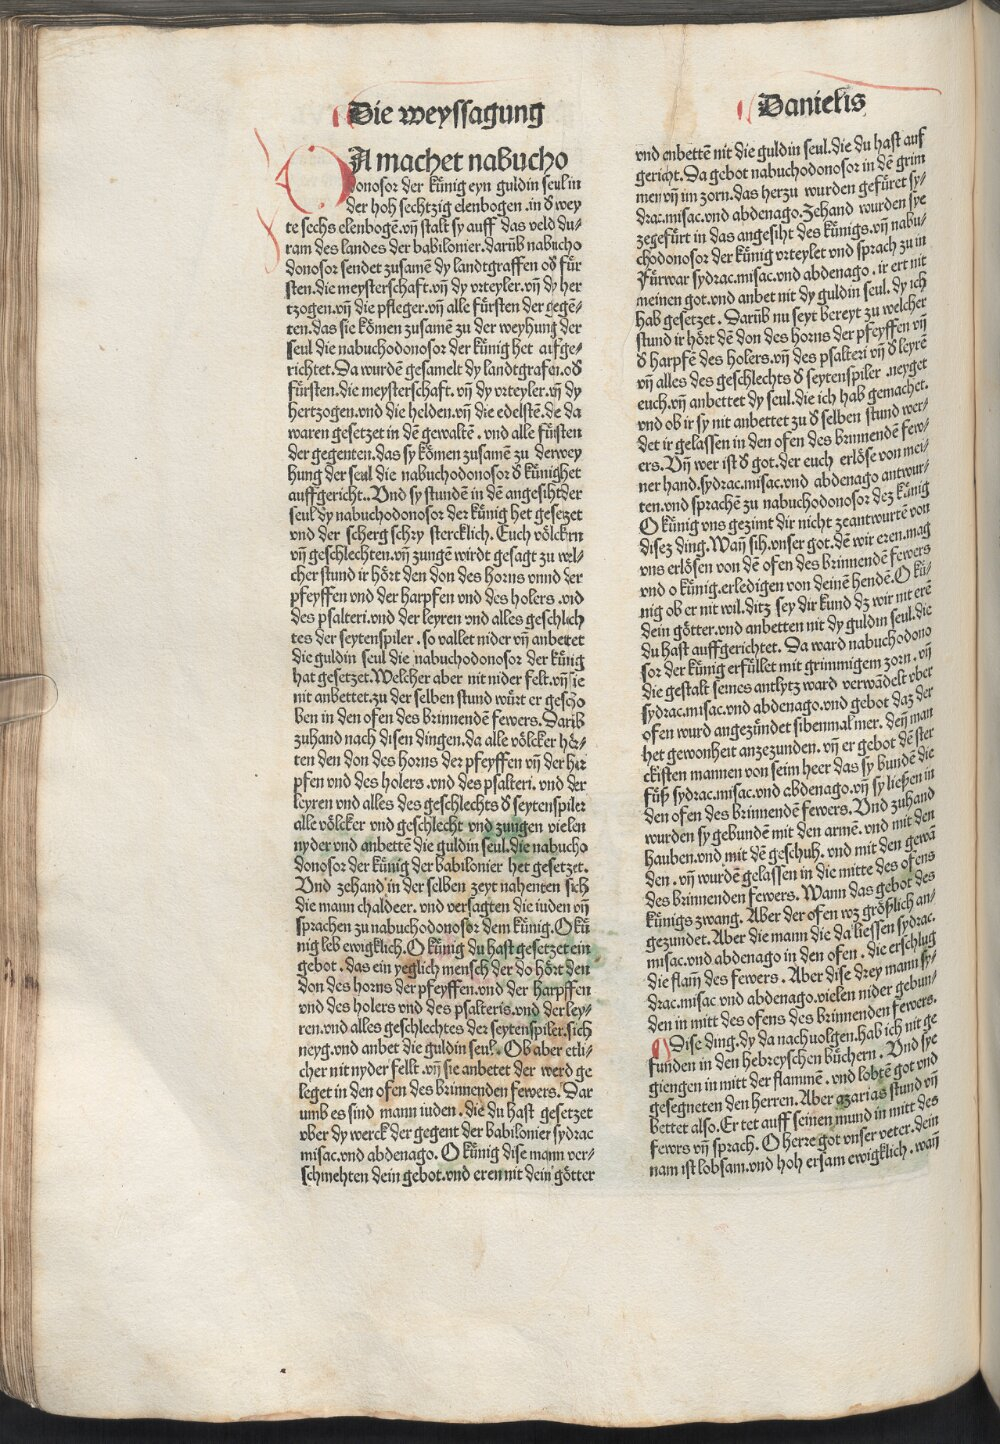 Die weyssagung
DA machet nabucho
donosor der künig eyn guldin seul in
der hoh sechtzig elenbogen .in d̕ wey
te sechs elenbogē.vn̄ stalt sy auff das veld du/
ram des landes der babilonier.darūb nabucho
donosor sendet zusamē dy landtgraffen od̕ für
sten.die meysterschaft.vn̄ dy vrteyler.vn̄ dy her
tzogen.vn̄ die pfleger.vn̄ alle fürsten der gegē/
ten.das sie kömen zusamē zu der weyhung der
seul die nabuchodonosor der künig het aufge/
richtet.Da wurdē gesamelt dy landtgrafen.od̕
fürsten.die meysterschaft. vn̄ dy vrteyler.vn̄ dy
hertzogen.vnd die helden.vn̄ die edelstē.de da
waren gesetzet in dē gewaltē . vnd alle fürsten
der gegenten.das sy kömen zusamē zu derwey
hung der seul die nabuchodonosor d̕ künighet
auffgericht..Vnd sy stundē in dē angesihtder
seul dy nabuchodonosor der künig het gesetzet
vnd der scherg schry stercklich. Euch völckrn
vn̄ geschlechten.vn̄ zungē wirdt gesagt zu wel/
cher stund ir hört den don des horns vnnd der
pfeyffen vnd der harpfen vnd des holers .vnd
des psalteri.vnd der leyren vnd alles geschlich
tes der seytenspiler . so vallet nider vn̄ anbetet
die guldin seul die nabuchodonosor der künig
hat gesetzet.Welcher aber nit nider felt.vn̄ sie
nit anbettet.zu der selben stund würt er gescho
ben in den ofen des brinnendē fewers. Darūb
zuhand nach disen dingen.da alle völcker hör/
ten den don des horns der pfeyffen vn̄ der har
pfen vnd des holers .vnd des psalteri. vnd der
leyren vnd alles des geschlechts d̕ seytenspiler
alle völcker vnd geschlecht vnd zungen vielen
nyder vnd anbettē die guldin seul.die nabucho
donosor der künig der babilonier het gesetzet.
Vnd zehand in der selben zeyt nahenten sich
die mann chaldeer. vnd versagten die iuden vn̄
sprachen zu nabuchodonosor dem künig.O kü
nig leb ewigklich.O künig du hast gesetzet ein
gebot . das ein yeglich mensch der do hört den
don des horns der pfeyffen.vnd der harpffen
vnd des holers vnd des psalteris.vnd der ley/
ren.vnd alles geschlechtes der seytenspiler.sich
neyg.vnd anbet die guldin seul. Ob aber etli/
cher nit nyder fellt.vn̄ sie anbetet der werd ge
leget in den ofen des brinnenden fewers. Dar
umb es sind mann iuden . die du hast gesetzet
vber dy werck der gegent der babilonier sydrac
misac.vnd abdenago. O künig dise mann ver/
schmehten dein gebot.vnd eren nit dein götter
Danielis
vnd anbettē nit die guldin seul.die du hast auf
gericht.Da gebot nabuchodonosor in dē grim
men vn̄ im zorn.das herzu wurden gefüret sy/
drac.misac.vnd abdenago.Zehand wurden sye
zegefürt in das angesiht des künigs.vn̄ nabu/
chodonosor der künig vrteylet vnd sprach zu in
Fürwar sydrac.misac.vnd abdenago . ir ert nit
meinen got.vnd anbet nit dy guldin seul. dy ich
hab gesetzet . Darūb nu seyt bereyt zu welcher
stund ir hört dē don des horns der pfeyffen vn̄
d̕ harpfē des holers.vn̄ des psalteri vn̄ d̕ leyrē
vn̄ alles des geschlechts d̕ seytenspiler .neyget
euch.vn̄ anbettet dy seul.die ich hab gemachet.
vnd ob ir sy nit anbettet zu d̕ selben stund wer/
det ir gelassen in den ofen des brinnendē few/
ers. Vn̄ wer ist d̕ got.der euch erlöse von mei/
ner hand.sydrac.misac.vnd abdenago antwur/
ten.vnd sprachē zu nabuchodonosor dez künig
O künig vns gezimt dir nicht zeantwurtē von
disez ding.Wan̄ sih.vnser got.dē wir eren.mag
vns erlösen von dē ofen des brinnendē fewers
vnd o künig.erledigen von deinē hendē.O kü/
nig ob er nit wil.ditz sey dir kund dz wir nit erē
dein götter.vnd anbetten nit dy guldin seul.die
du hast auffgerichtet. Da ward nabuchodono
sor der künig erfüllet mit grimmigem zorn . vn̄
die gestalt seines antlytz ward verwādelt vber
sydrac.misac.vnd abdenago.vnd gebot daz der
ofen wurd angezündet sibenmal mer. den̄ man
het gewonheit anzezunden. vn̄ er gebot dē ster
ckisten mannen von seim heer das sy bundē die
füß sydrac.misac.vnd abdenago.vn̄ sy ließen in
den ofen des brinnendē fewers. Vnd zuhand
wurden sy gebundē mit den armē. vnd mit den
hauben.vnd mit dē geschuh. vnd mit den gewā
den . vn̄ wurdē gelassen in die mitte des ofens
des brinnenden fewers. Wann das gebot des
künigs zwang. Aber der ofen wz größlich an/
gezundet. Aber die mann die da liessen sydrac.
misac.vnd abdenago in den ofen . die erschlug
die flam̄ des fewers . Aber dise drey mann sy/
drac.misac vnd abdenago.vielen nider gebun/
den in mitt des ofens des brinnenden fewers.
Dise ding.dy da nachuolgen.hab ich nit ge
funden in den hebreyschen büchern . Vnd sye
giengen in mitt der flammē . vnd lobtē got vnd
gesegneten den herren.Aber azarias stund vn̄
bettet also.Er tet auff seinen mund in mitt des
fewrs vn̄ sprach. O herre got vnser veter.dein
nam ist lobsam.vnd hoh ersam ewigklich . wan̄